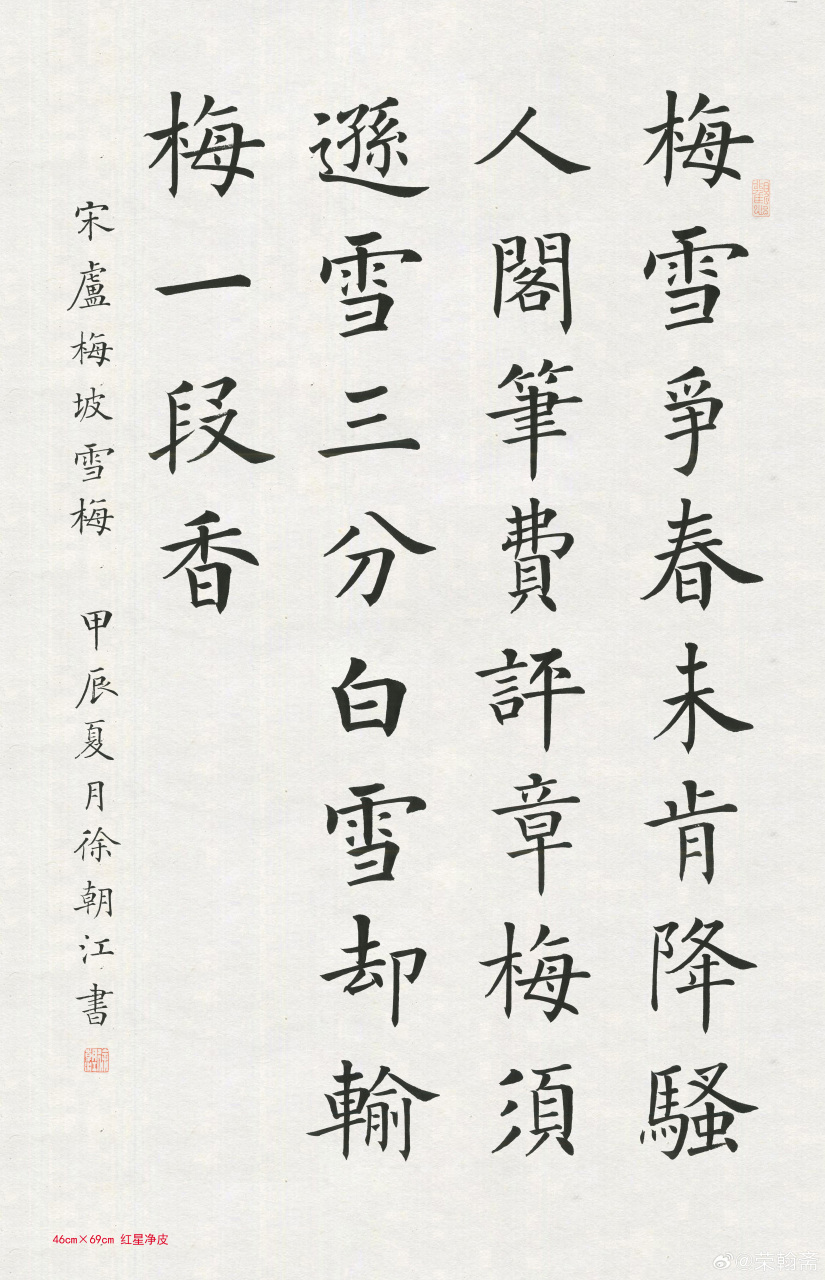 梅雪爭春未肯降騷
人閣筆費評章梅須
遜雪三分白雪却輸
梅一段香
宋盧梅坡雪梅 甲辰夏月徐朝江書
46cm×69cm 红星净皮
@荣翰斋